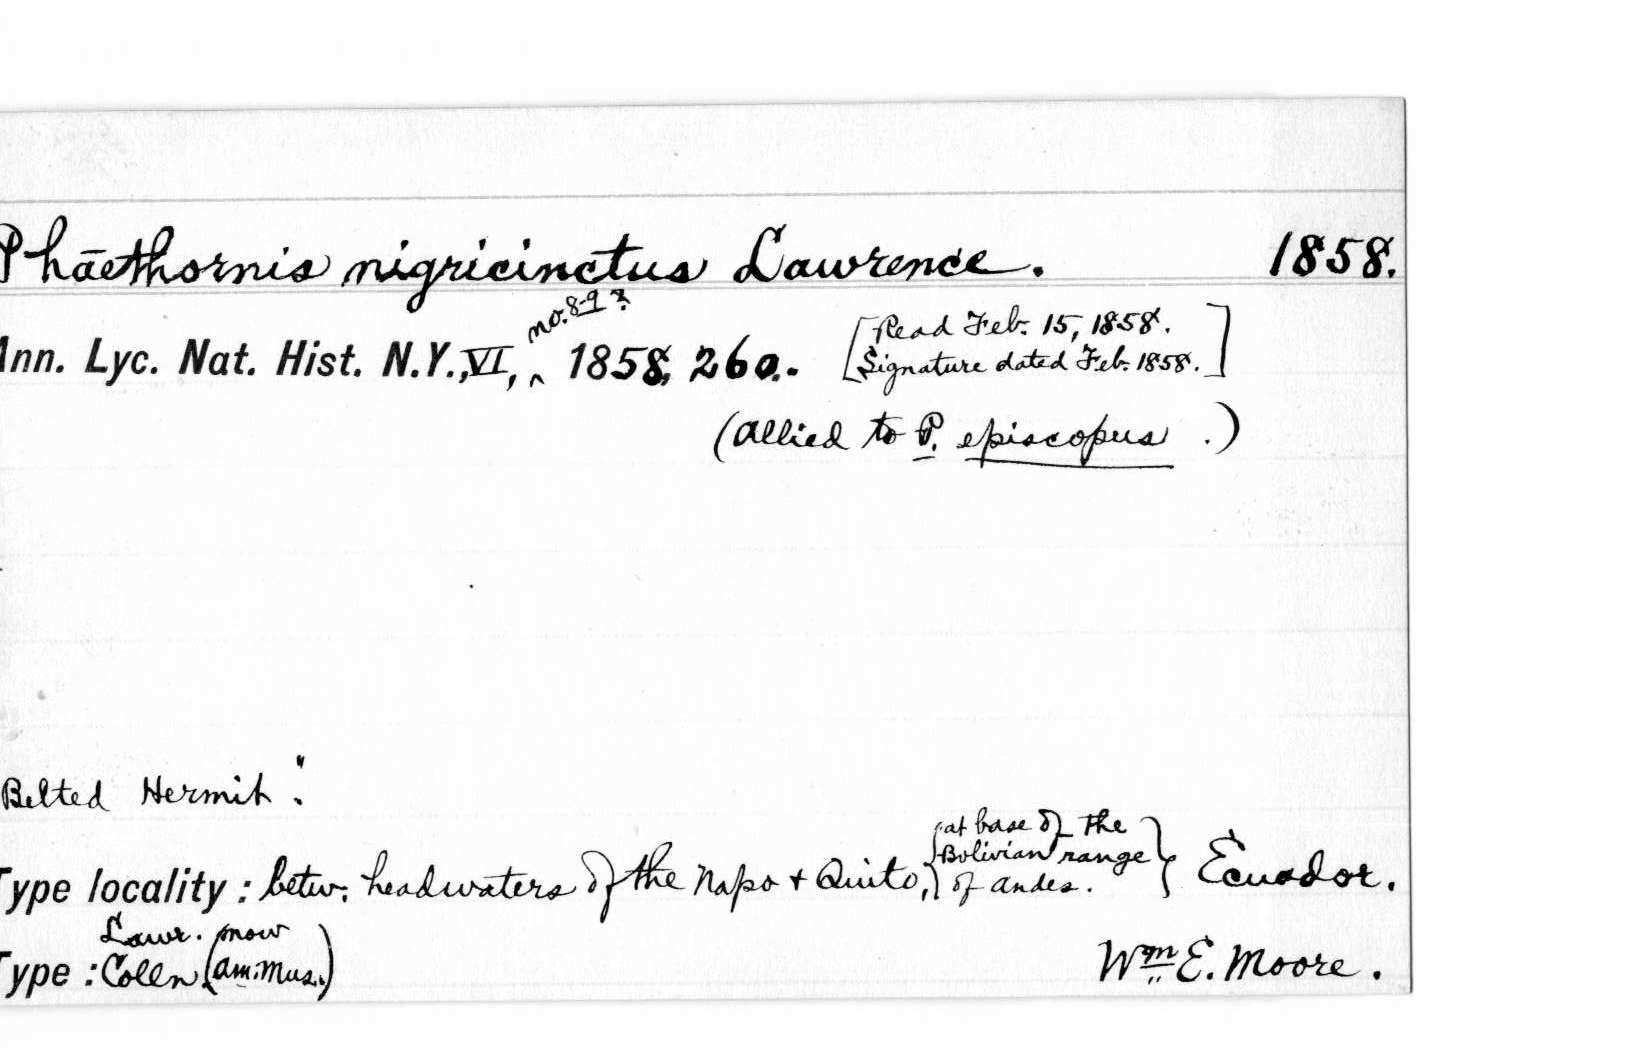 Phāethornis nigricinctus Lawrence. 1858.
Ann. Lyc. Nat. Hist. N.Y., VI, no. 8-9? 1858, 260. [Read Feb. 15, 1858.
Signature dated Feb. 1858.]
(allied to P. episcopus .)
Belted Hermit."
Type locality: betw. headwaters of the Napo + Quito, {at base of the Bolivian range of Andes.} Ecuador.
Type: Lawr. Colln. (now Am. Mus.) Wm E. Moore.